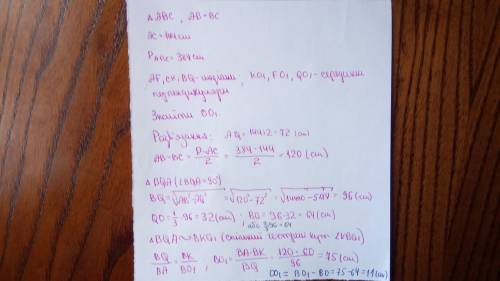 △ABC, AB=BC
AC=144cm
P_ABC=384cm
AF, CK, BQ-медіани; KO₁, FO₁, QO₁-серединні
перпендикуляри
Знайти OO₁
Розв'язання: AQ=144:2=72 (cm)
AB=BC=(P-AC)/2=(384-144)/2=120(cm)
△BQA(∠BQA=90°)
BQ=√(AB²-AQ²)=√(120²-72²)=√(14400-5184)=96(cm)
QO=1/3·96=32(cm); BO=96-32=64(cm)
або 2/3·96=64
△BQA∾△BKO₁ (спільний гострий кут ∠KBO₁)
BQ/BA=BK/BO₁, BO₁=BA·BK/BQ=120·60/96=75(cm)
OO₁=BO₁-BO=75-64=11(cm)